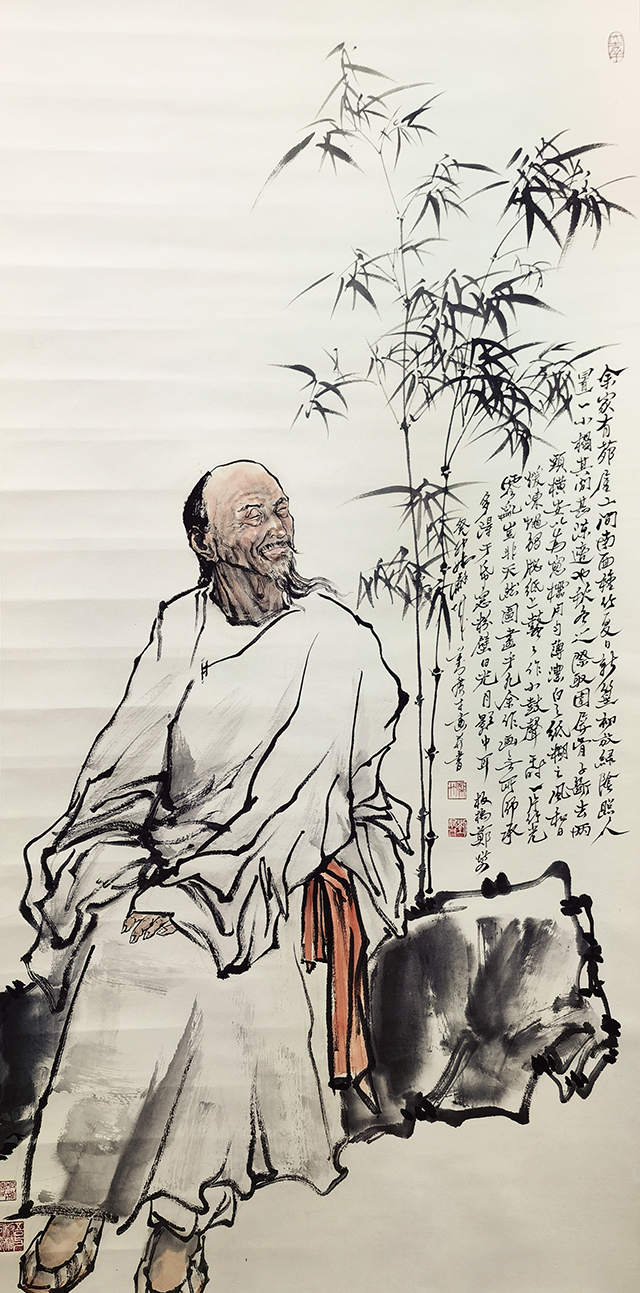 余家有茆屋二间南面種竹夏日新篁初放緑陰照人
置一小榻其中甚涼適也秋冬之際取圍屏骨子斷去兩
頭橫安以為窓櫺用匀薄潔白之紙糊之風和日
暖凍蠅觸窓纸上鼕々作小鼓聲時一片竹光
零亂豈非天然圖畫乎凡余作画無所師承
多得于纸窓粉壁日光月影中耳 板橋鄭燮
癸 并書